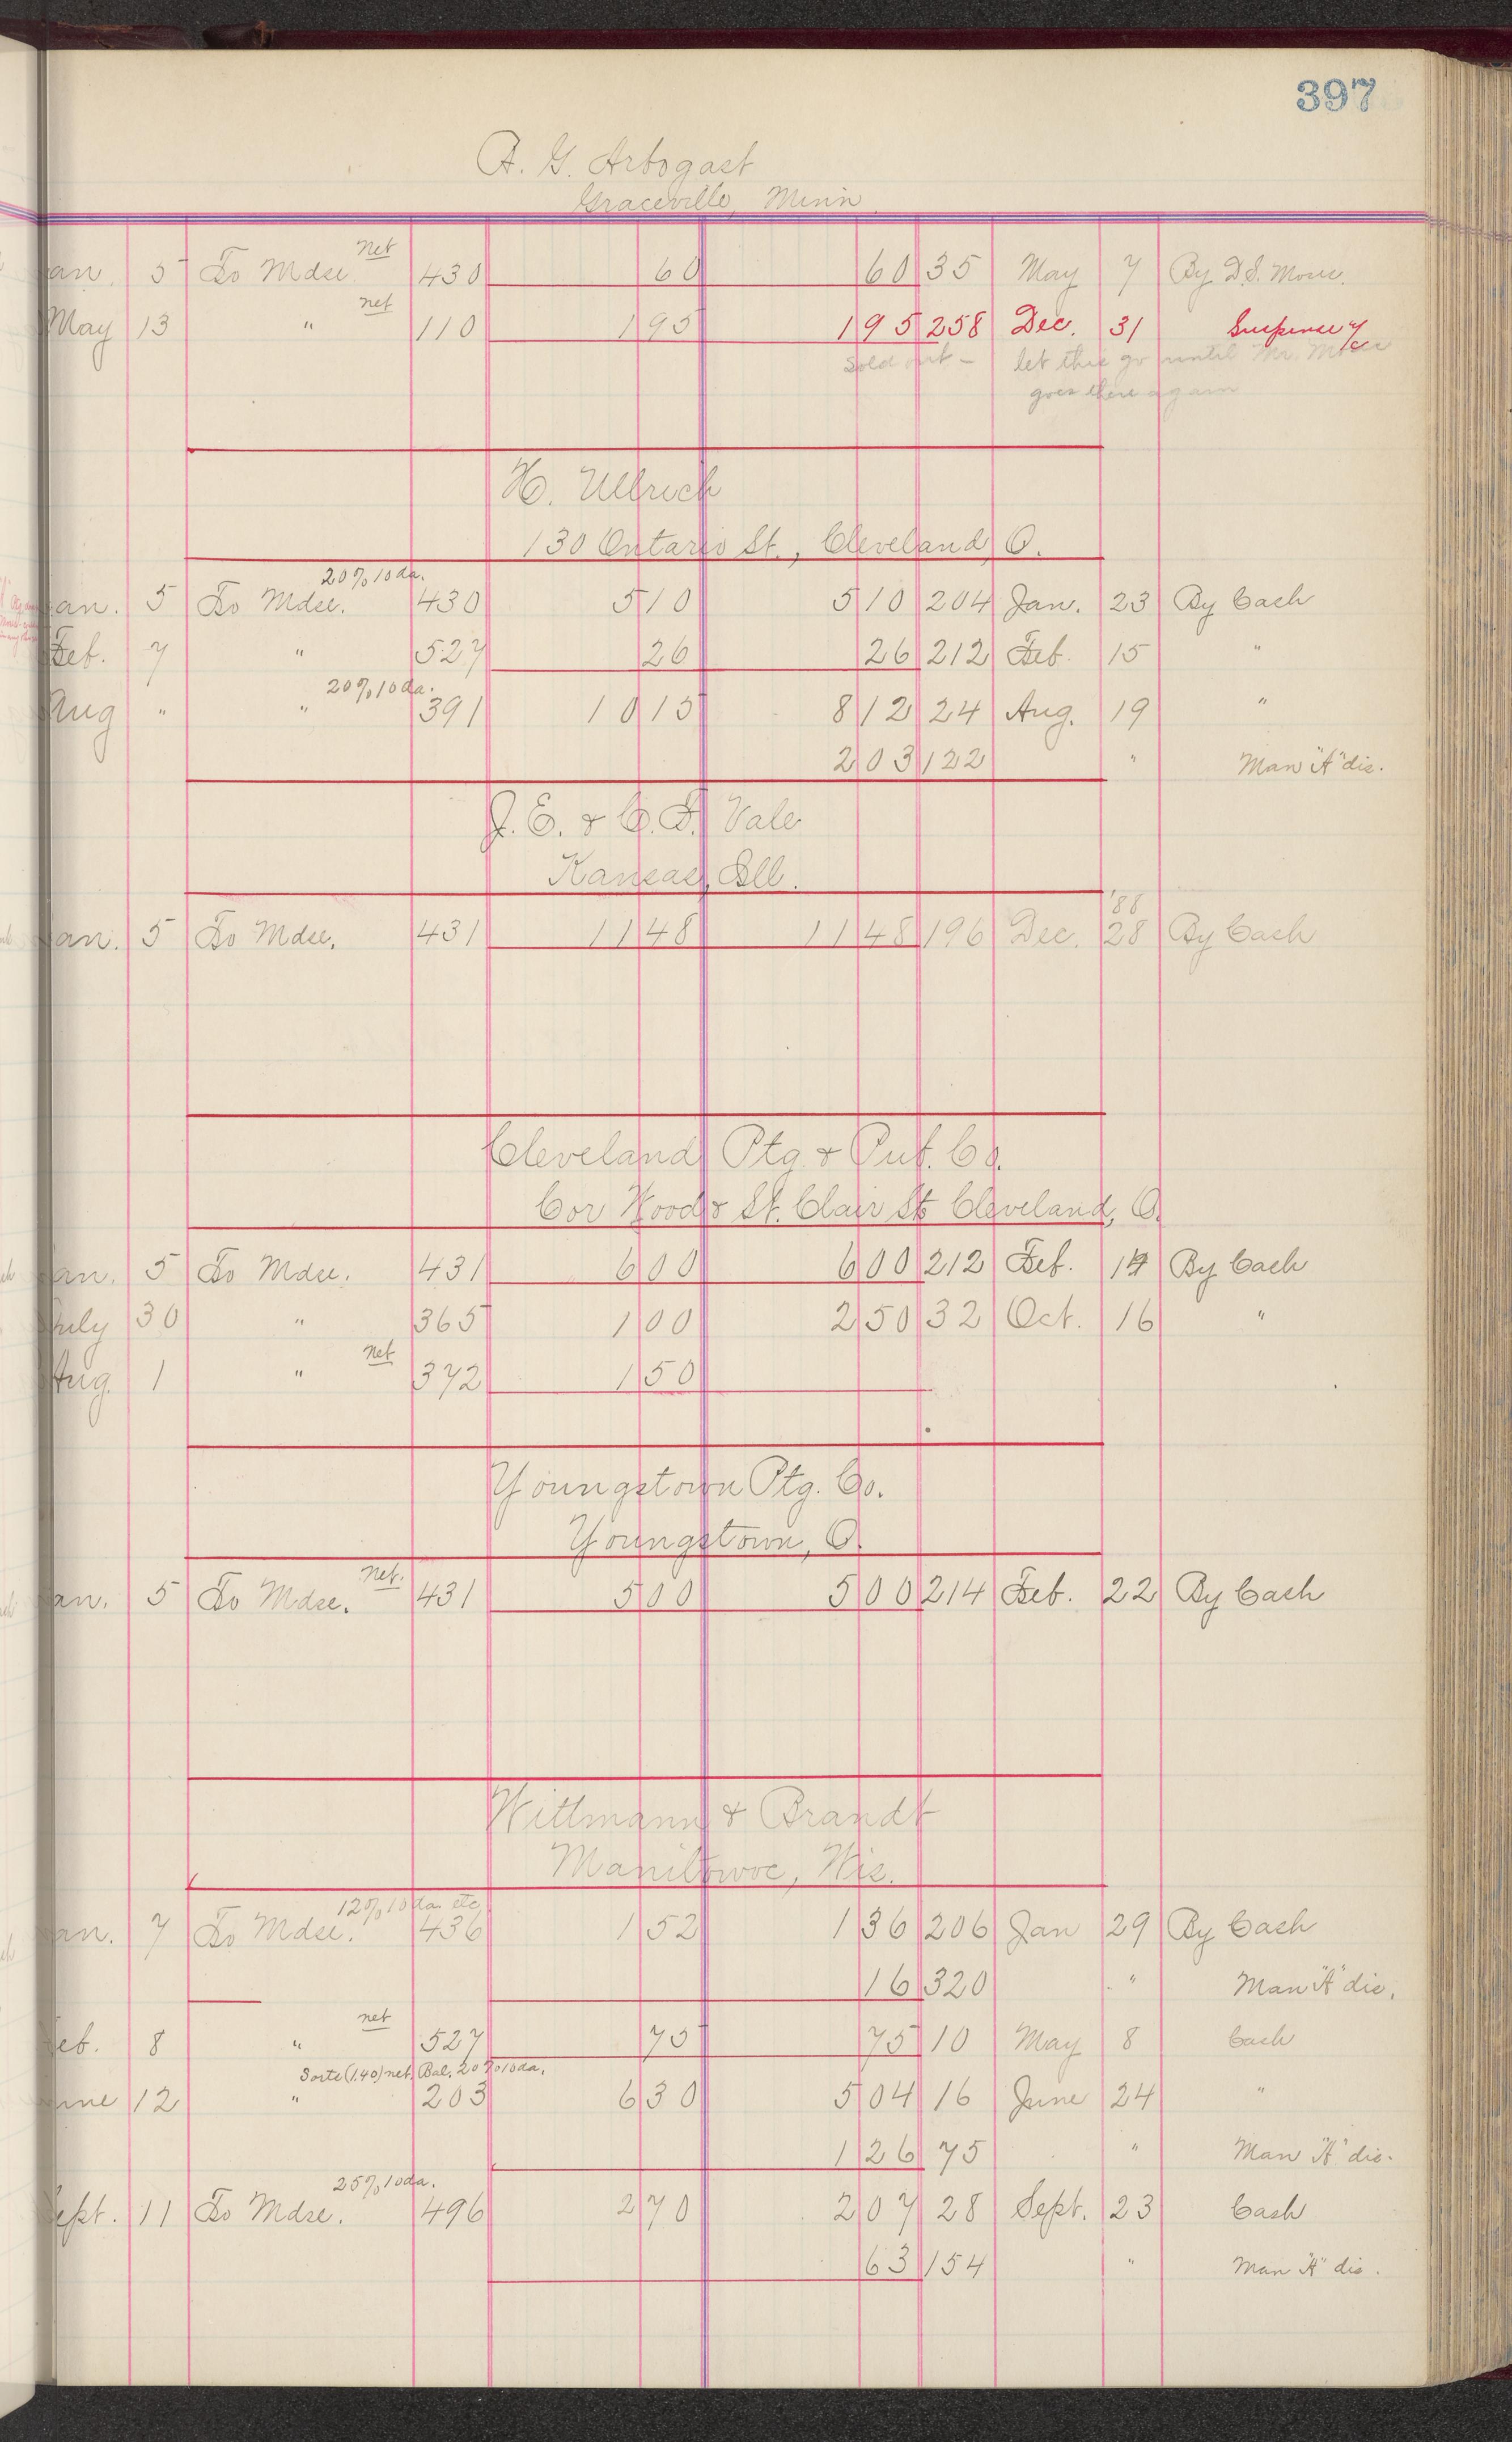 397
A. G. Arbogast
Graceville, Minn
an. 5 To Mdse. net 430 60 60 35 May 7 By D.S. Morse.
May 13 " net 110 1 95 1 95 258 Dec. 31 Suspense a/c
Sold out - let this go until Mr. Morse
goes there again
H. Ullrich
130 Ontario St., Cleveland, O.
an. 5 To Mdse. 20% 10 da. 430 5 10 5 10 204 Jan. 23 By Cash
Feb. 7 " 527 26 26 212 Feb. 15 "
Aug " " 20% 10 da. 391 10 15 8 12 24 Aug. 19 "
2 03 122 " Man "A" dis.
J. E. & C. F. Vale
Kansas, Ill.
'88
an. 5 To Mdse. 431 11 48 11 48 196 Dec. 28 By Cash
Cleveland Ptg. & Pub. Co.
Cor Wood & St. Clair St Cleveland, O.
an. 5 To Mdse. 431 6 00 6 00 212 Feb. By Cash
July 30 " 365 1 00 2 50 32 Oct. 16 "
Aug. 1 " net 372 1 50
Youngstown Ptg. Co.
Youngstown, O.
an. 5 To Mdse. net. 431 5 00 5 00 214 Feb. 22 By Cash
Wittmann & Brandt
Manitowoc, Wis.
an. 7 To Mdse. 12% 10 da. etc 436 1 52 1 36 206 Jan 29 By Cash
16 320 " Man "A" dis.
eb. 8 " net 527 75 75 10 May 8 Cash
Sorts (1.40) net, Bal. 20% 10 da.
une 12 " 203 6 30 5 04 16 June 24 "
1 26 75 " Man "A" dis.
ept. 11 To Mdse. 25% 10 da. 496 2 70 2 07 28 Sept. 23 Cash
63 154 " Man "A" dis.